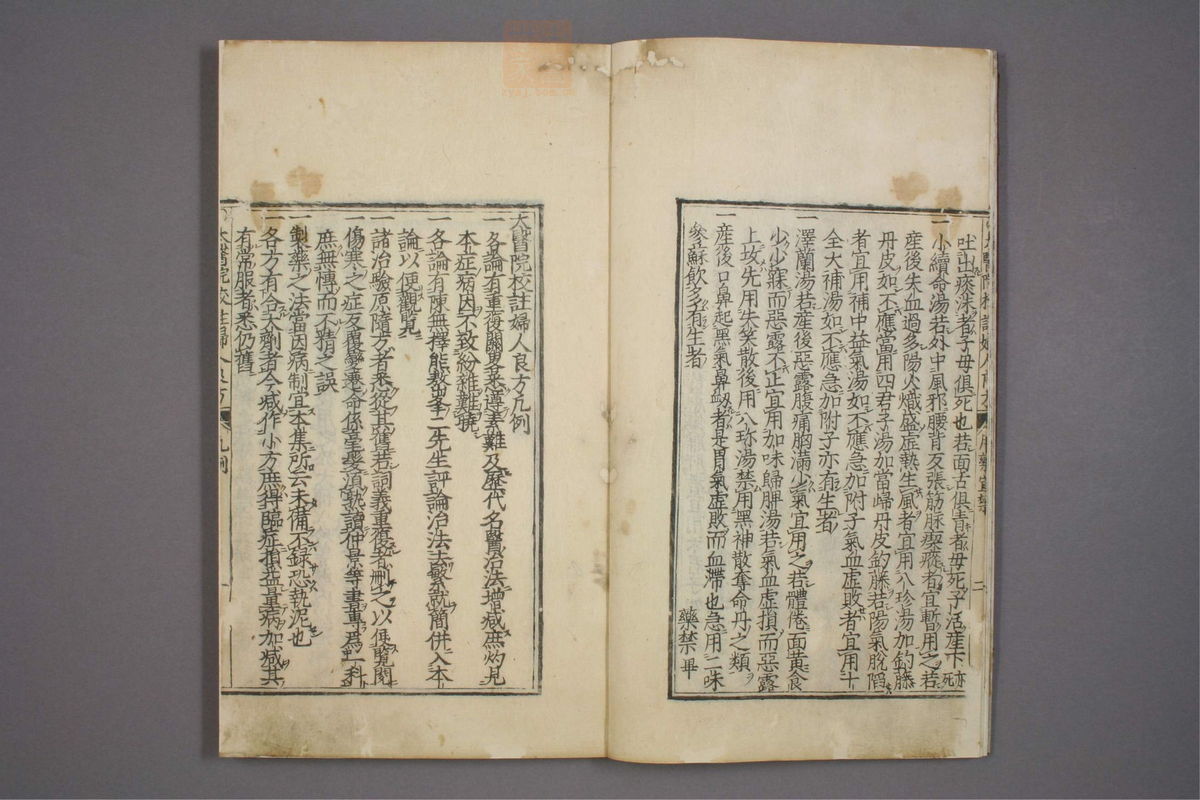 吐出痰沫者子母俱死也若面舌俱青者母死子活産下亦死
一小續命湯若外中風邪腰背反張筋脉瘈瘲者宜暫用之若
産後失血過多陽火熾盛虚熱生風者宜用八珍湯加釣藤
丹皮如不應當用四君子湯加當歸丹皮釣藤若陽氣脫陷
者宜用補中益氣湯如不應急加附子氣血虚敗者宜用十
全大補湯如不應急加附子亦有生者
一澤蘭湯若産後惡露腹痛胸滿少氣宜用之若體倦面黄食
少少寐而惡露不止宜用加味歸脾湯若氣血虚損而惡露
上攻先用失笑散後用八珎湯禁用黑神散奪命丹之類
一産後口鼻起黑氣鼻衂者是胃氣虚敗而血滯也急用二味
參蘇飲多有生者
藥禁畢
服藥宜禁
二
太醫院校註婦人良方凡例
一各論有重復關畧悉遵素難及歷代名醫治法增減庶灼見
本症病因不致紛雜難曉
一各論有陳無擇熊鰲峯二先生評論治法去繁就簡併入本
論以便觀覽
一諸治驗原隨方者悉從其舊若詞義重複者刪之以便覽閱
一傷寒之症反覆變乗命係毫髮須熟讀仲景等書專爲一科
庶無慱而不精之誤
一製藥之法當因病制宜本集所云未備不録恐執泥也
一各方有合大劑者今減作小方庶得臨症損益量病加減其
有常服者悉仍舊
太醫院校註婦人良方
凡例
一